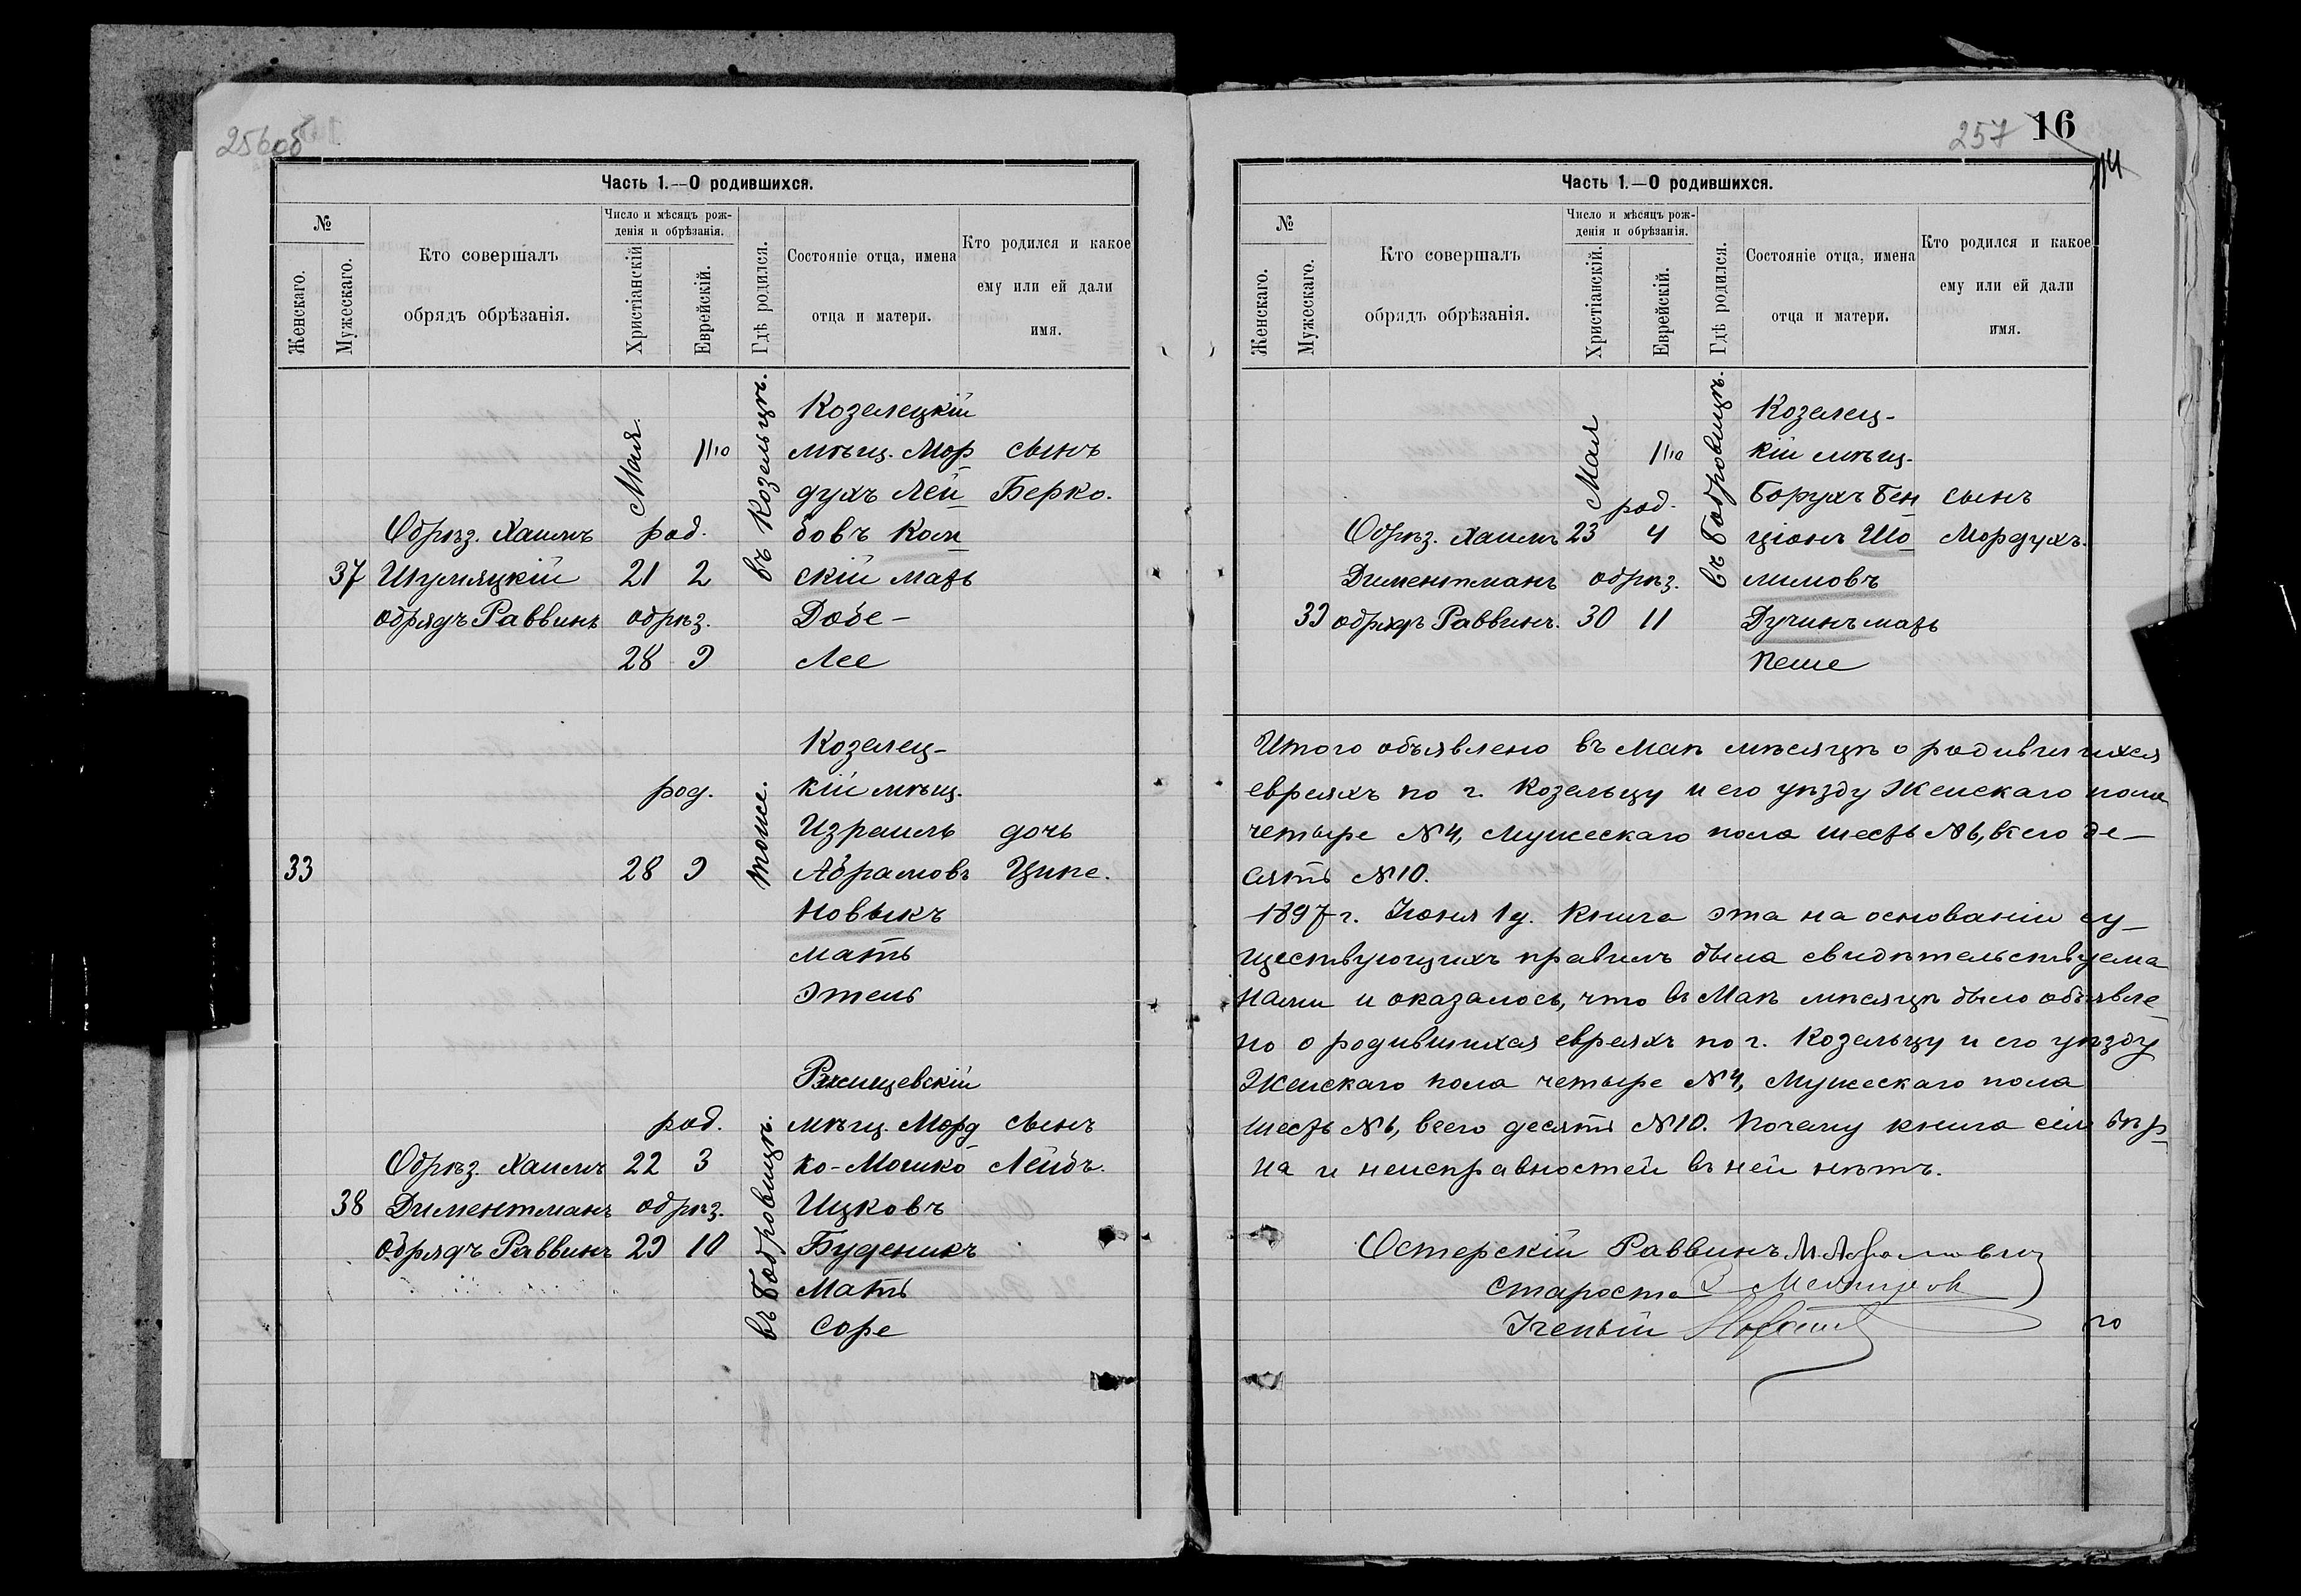 256об
Часть 1.—О родившихся.
№
Женскаго.
Мужескаго.
Кто совершалъ
обрядъ обрѣзанія.
Число и мѣсяцъ рож-
денія и обрѣзанія.
Христіанскій
Еврейскій.
Гдѣ родился.
Состояніе отца, имена
отца и матери.
Кто родился и какое
ему или ей дали
имя.
37
Обрѣз. Хаимъ
Шумяцкій
обрядъ Раввинъ
Мая.
род.
21 2
обрѣз.
28 9
въ Козельцѣ.
Козелецкій
мѣщ. Мор
духъ Лей
бовъ
скій мать
Добе-
Лее
сынъ
Берко.
33
род.
28 9
тоже.
Козелец-
кій мѣщ.
Израиль
Абрамовъ
Новыкъ
мать
Этель
дочь
Ципе.
38
Обрѣз. Хаимъ
Диментманъ
обрядъ Раввинъ
род.
22 3
обрѣз.
29 10
въ Бобровицѣ.
Ржищевскій
мѣщ. Морд
ко-Мошко
Ицковъ
Буденикъ
Мать
Соре
сынъ
Лейбъ.
257 16
14
Часть 1.—О родившихся.
№
Женскаго.
Мужескаго.
Кто совершалъ
обрядъ обрѣзанія.
Число и мѣсяцъ рож-
денія и обрѣзанія.
Христіанскій.
Еврейскій.
Гдѣ родился.
Состояніе отца, имена
отца и матери.
Кто родился и какое
ему или ей дали
имя.
39
Обрѣз. Хаимъ
Диментманъ
обрядъ Раввинъ.
Мая
род.
23 4
обрѣз.
30 11
въ Бобровицѣ.
Козелец-
кій мѣщ.
Борухъ Бен
ціонъ Шо
лимовъ
Дучинъ мать
Пеше
сынъ
Мордухъ.
Итого объявлено въ Маѣ мѣсяцѣ о родившихся
евреяхъ по г. Козельцу и его уѣзду Женскаго пола
четыре №4, Мужескаго пола шесть №6, всего де-
сять №10.
1897 г. Іюня 1 д. Книга эта на основаніи су-
ществующихъ правилъ была свидѣтельствуема
нами и оказалось, что въ Маѣ мѣсяцѣ было объявле
но о родившихся евреяхъ по г. Козельцу и его уѣзду
Женскаго пола четыре №4, Мужескаго пола
шесть №6, всего десять №10. Почему книга сія вѣр
на и неисправностей въ ней нѣтъ.
Остерскій Раввинъ
Староста
Ученый